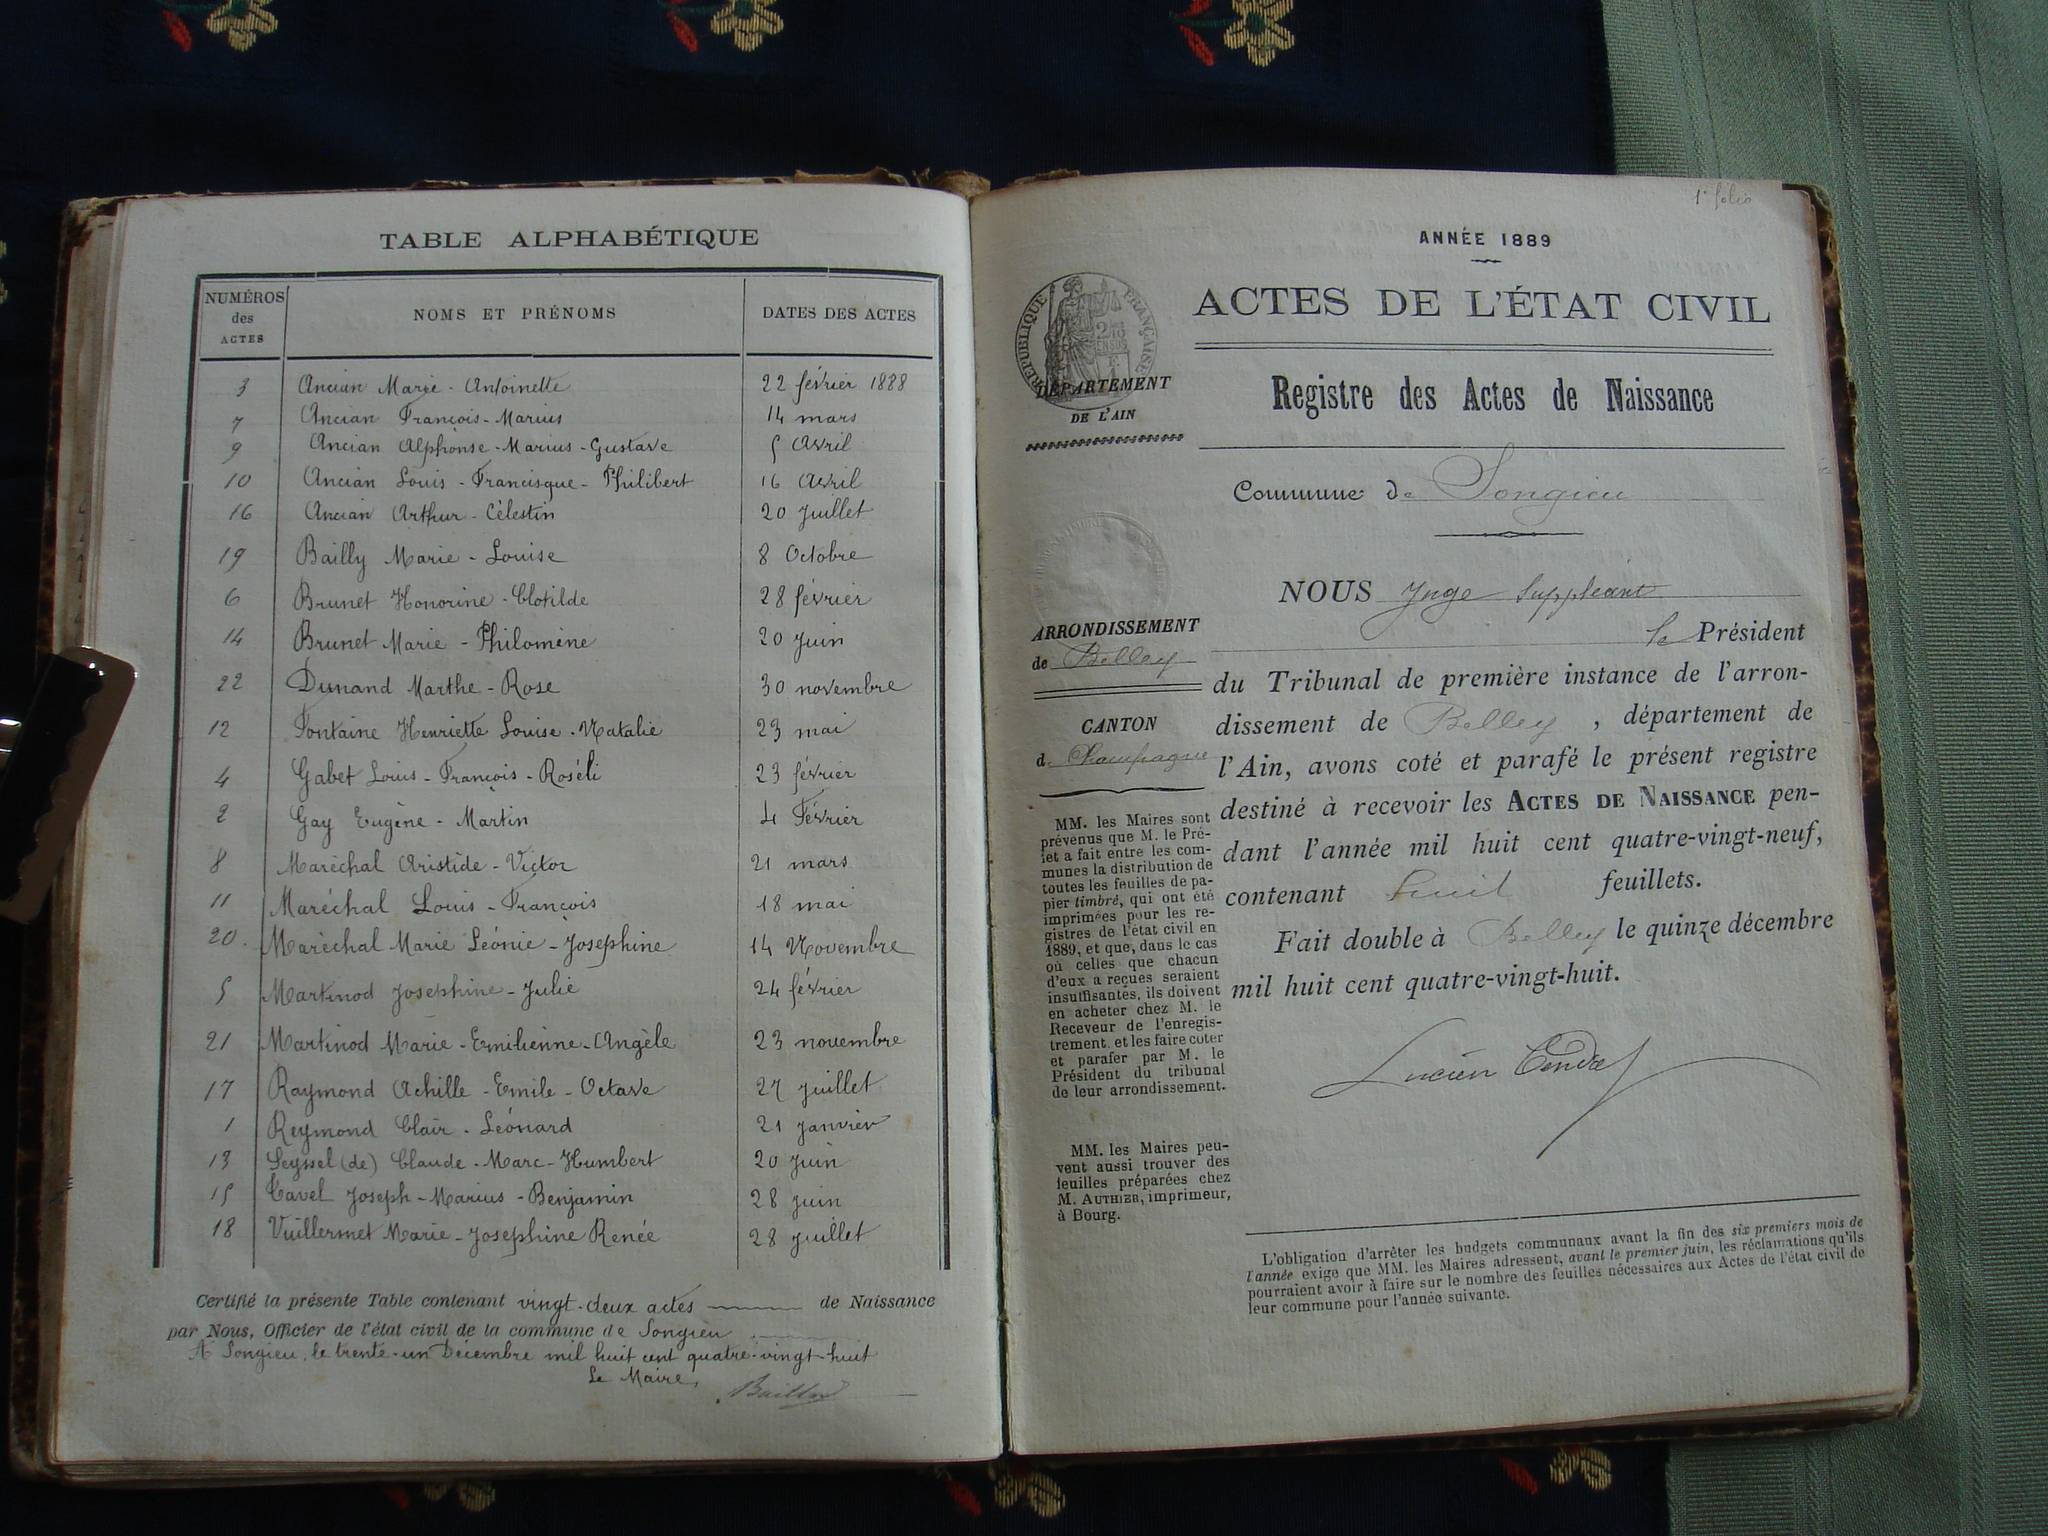 TABLE ALPHABÉTIQUE
NUMÉROS des ACTES NOMS ET PRÉNOMS DATES DES ACTES
3 Ancian Marie - Antoinette 22 février 1888
7 Ancian François - Marius 14 mars
9 Ancian Alphonse - Marius - Gustave 5 Avril
10 Ancian Louis - Francisque - Philibert 16 Avril
16 Ancian Arthur - Célestin 20 juillet
19 Bailly Marie - Louise 8 Octobre
6 Brunet Honorine - Clotilde 28 février
14 Brunet Marie - Philomène 20 juin
22 Dunand Marthe - Rose 30 novembre
12 Fontaine Henriette Louise - Natalie 23 mai
4 Gabet Louis - François - Roséli 23 février
2 Gay Eugène - Martin 4 Février
8 Maréchal Aristide - Victor 21 mars
11 Maréchal Louis - François 18 mai
20. Maréchal Marie Léonie - Josephine 14 Novembre
5 Martinod Josephine - Julie 24 février
21 Martinod Marie - Emilienne - Angèle 23 novembre
17 Raymond Achille - Emile - Octave 27 juillet
1 Reymond Clair - Léonard 21 janvier
13 Seyssel (de) Claude - Marc - Humbert 20 juin
15 Tavel Joseph - Marius - Benjamin 28 juin
18 Vuillermet Marie - Josephine Renée 28 juillet
Certifié la présente Table contenant vingt-deux actes de Naissance
par Nous, Officier de l'état civil de la commune de Songieu
A Songieu, le trente-un Décembre mil huit cent quatre-vingt-huit
Le Maire,
1er folio
ANNÉE 1889
ACTES DE L'ÉTAT CIVIL
RÉPUBLIQUE FRANÇAISE
DÉPARTEMENT
DE L'AIN
Registre des Actes de Naissance
Commune de Songieu
NOUS Juge Suppléant
le Président
ARRONDISSEMENT
de Belley
CANTON
de Champagne
du Tribunal de première instance de l'arron-
dissement de Belley, département de
l'Ain, avons coté et parafé le présent registre
destiné à recevoir les ACTES DE NAISSANCE pen-
dant l'année mil huit cent quatre-vingt-neuf,
contenant huit feuillets.
Fait double à Belley le quinze décembre
mil huit cent quatre-vingt-huit.
Lucien
MM. les Maires sont
prévenus que M. le Pré-
fet a fait entre les com-
munes la distribution de
toutes les feuilles de pa-
pier timbré, qui ont été
imprimées pour les re-
gistres de l'état civil en
1889, et que, dans le cas
où celles que chacun
d'eux a reçues seraient
insuffisantes, ils doivent
en acheter chez M. le
Receveur de l'enregis-
trement. et les faire coter
et parafer par M. le
Président du tribunal
de leur arrondissement.
MM. les Maires peu-
vent aussi trouver des
feuilles préparées chez
M. AUTHIER, imprimeur,
à Bourg.
L'obligation d'arrêter les budgets communaux avant la fin des six premiers mois de
l'année exige que MM. les Maires adressent, avant le premier juin, les réclamations qu'ils
pourraient avoir à faire sur le nombre des feuilles nécessaires aux Actes de l'état civil de
leur commune pour l'année suivante.